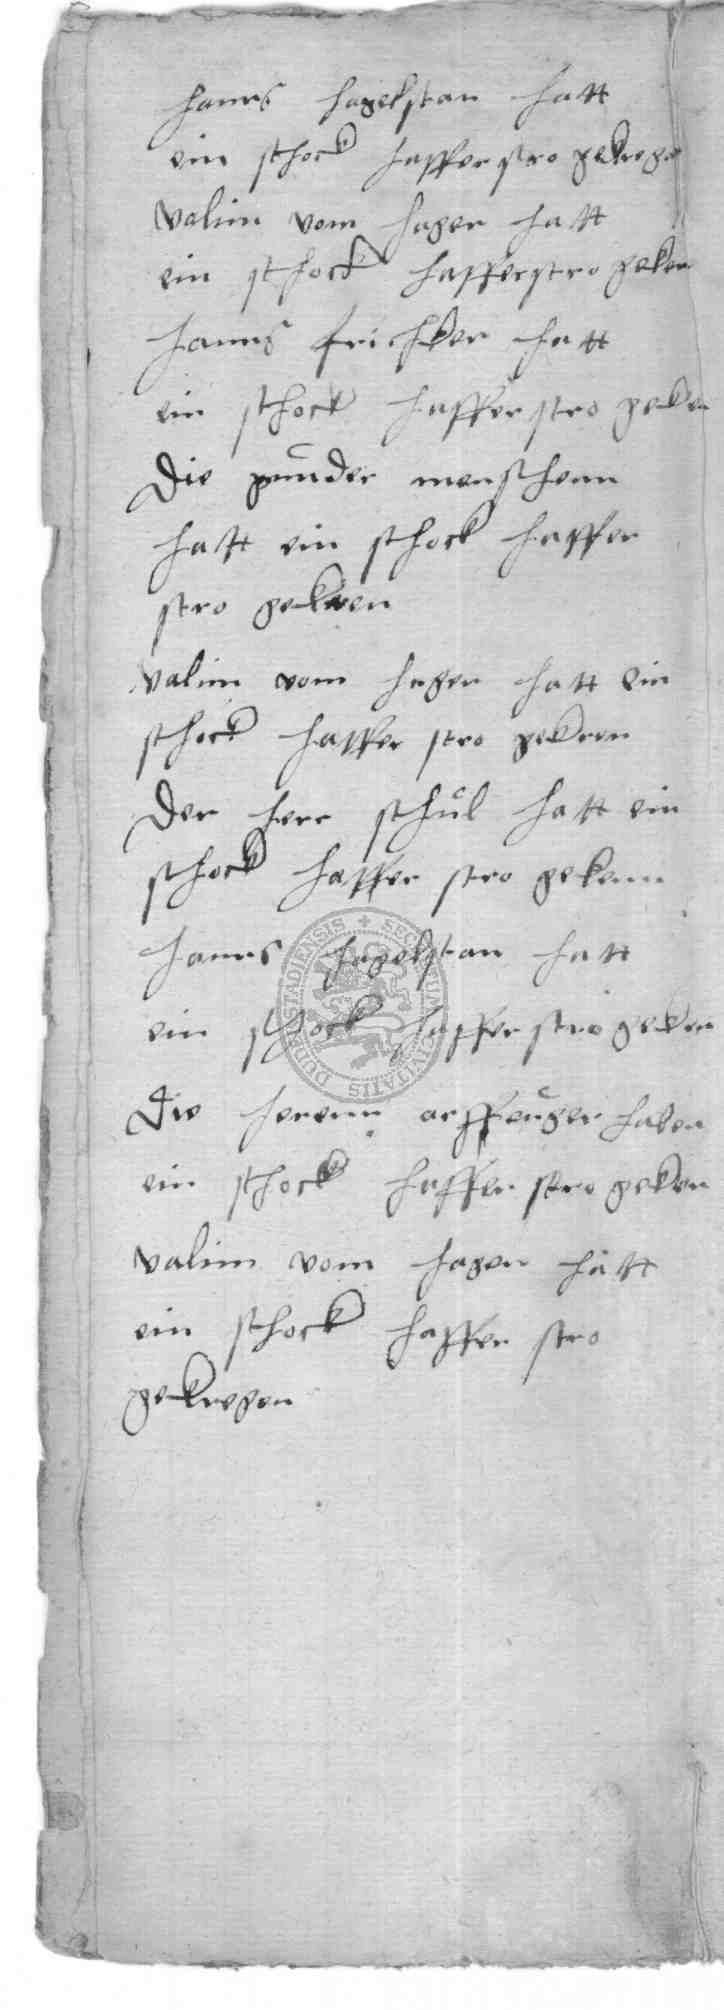 hanns hagelstan hatt
ein schock hafferstro gekrege
valim vom hagen hatt
ein schock hafferstro geken
hanns frichker hatt
ein schock haffer stro geken
Die menschenn
hatt ein schock haffer
stro gekren
valim vom hagen hatt ein
schock haffer stro gekren
Der herr schul hatt ein
schock haffer stro gekenn
hanns hagelstan hatt
ein schock haffer stro geken
Die herenn haben
ein schock haffer stro geken
valim vom hagen hatt
ein schock haffer stro
gekregen
SECRETUM CIVITATIS DUDERSTADIENSIS